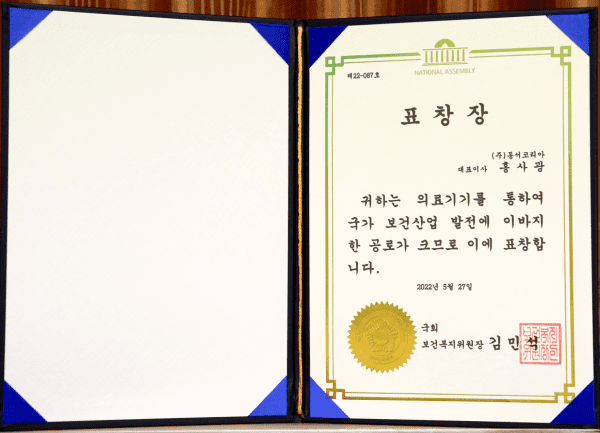 NATIONAL ASSEMBLY
제22-087호
표창장
(주)동서코리아
대표이사 홍사광
귀하는 의료기기를 통하여
국가 보건산업 발전에 이바지
한 공로가 크므로 이에 표창합
니다.
2022년 5월 27일
국회
보건복지위원장 김민석